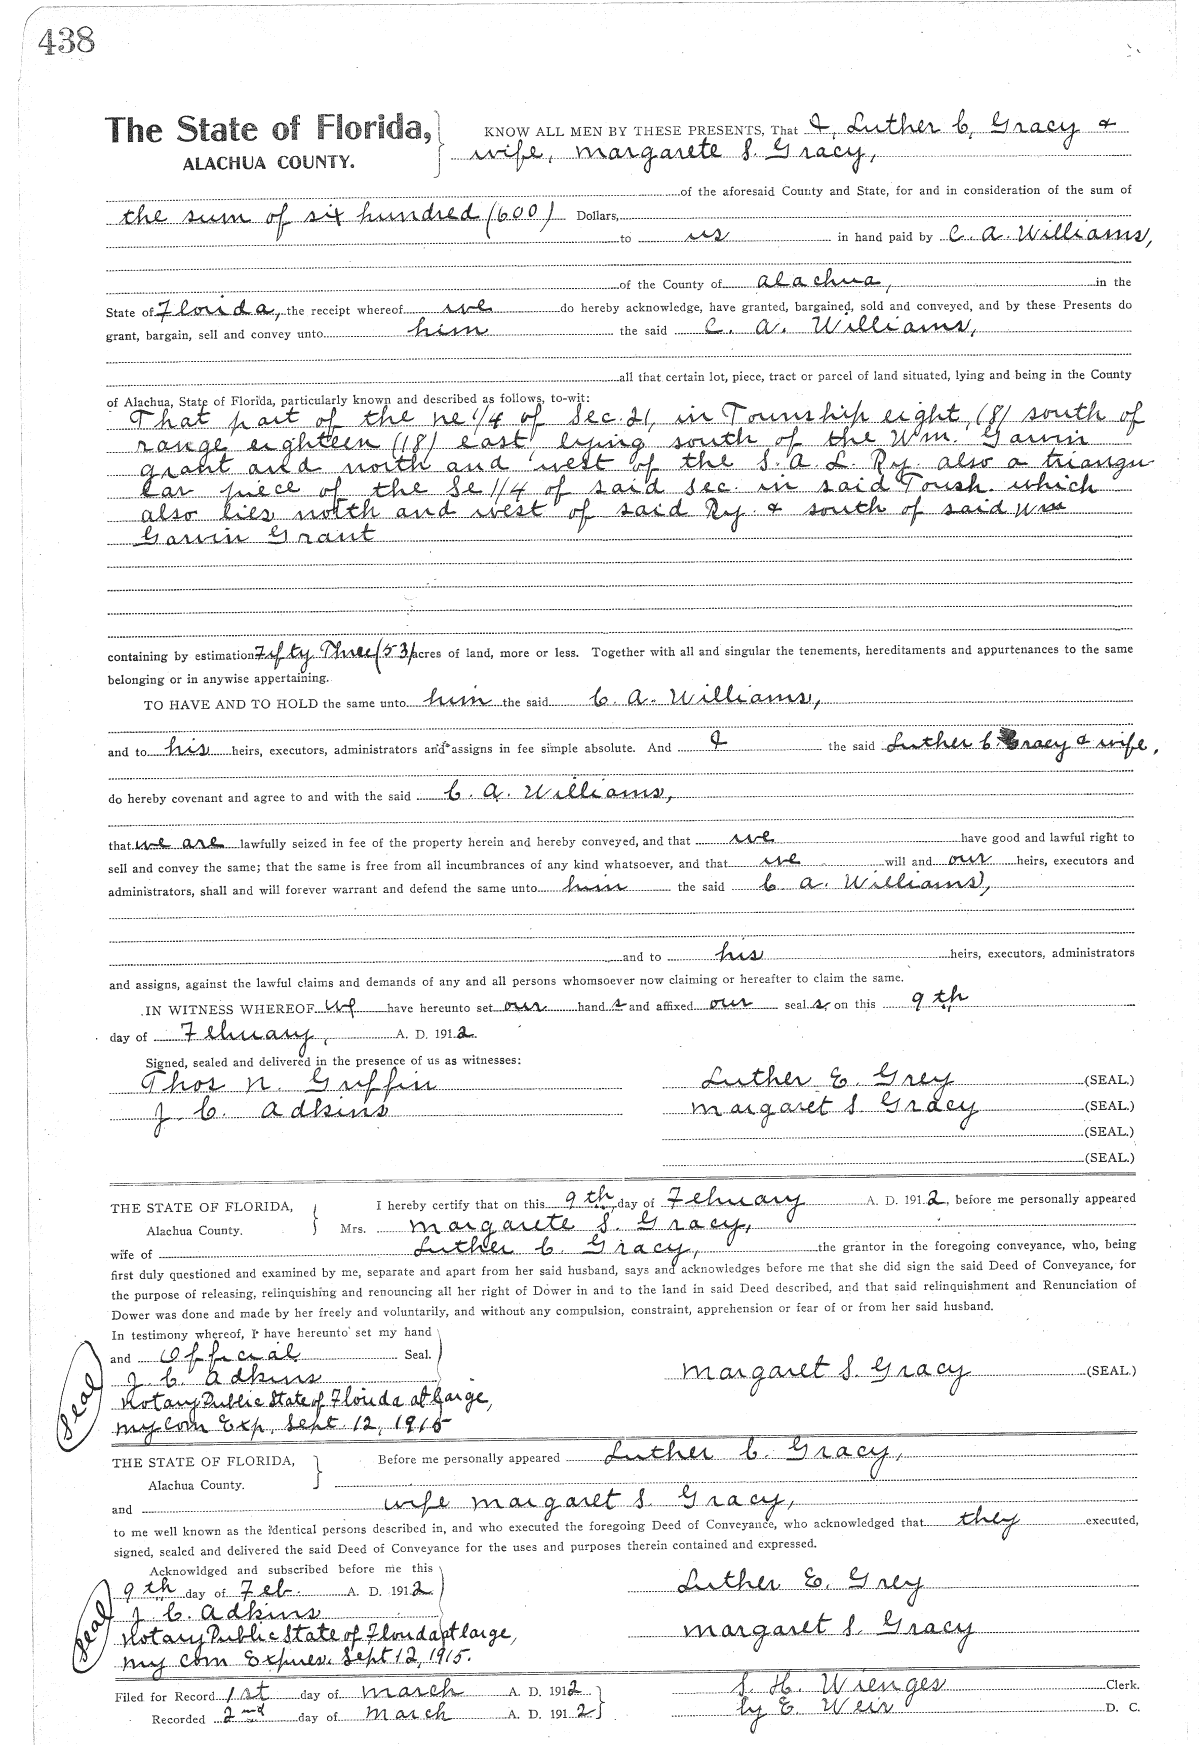 438
The State of Florida, KNOW ALL MEN BY THESE PRESENTS, That I, Luther C, Gracy &
ALACHUA COUNTY. wife, Margarete S. Gracy,
of the aforesaid County and State, for and in consideration of the sum of
the sum of six hundred (600) Dollars,
to us in hand paid by C. A. Williams,
of the County of Alachua, in the
State of Florida, the receipt whereof we do hereby acknowledge, have granted, bargained, sold and conveyed, and by these Presents do
grant, bargain, sell and convey unto him the said C. A. Williams,
all that certain lot, piece, tract or parcel of land situated, lying and being in the County
of Alachua, State of Florida, particularly known and described as follows, to-wit:
That part of the ne 1/4 of Sec. 21, in Township eight (8) south of
range eighteen (18) east lying south of the Wm. Garvin
grant and north and west of the S. A. L. Ry. also a triangu
lar piece of the Se 1/4 of said Sec. in said Toush. which
also lies north and west of said Ry & south of said Wm
Garvin Grant
containing by estimation Fifty Three (53) acres of land, more or less. Together with all and singular the tenements, hereditaments and appurtenances to the same
belonging or in anywise appertaining.
TO HAVE AND TO HOLD the same unto him the said C. A. Williams,
and to his heirs, executors, administrators and assigns in fee simple absolute. And I the said Luther C. Gracy & wife,
do hereby covenant and agree to and with the said C. A. Williams,
that we are lawfully seized in fee of the property herein and hereby conveyed, and that we have good and lawful right to
sell and convey the same; that the same is free from all incumbrances of any kind whatsoever, and that we will and our heirs, executors and
administrators, shall and will forever warrant and defend the same unto him the said C. A. Williams,
and to his heirs, executors, administrators
and assigns, against the lawful claims and demands of any and all persons whomsoever now claiming or hereafter to claim the same.
IN WITNESS WHEREOF we have hereunto set our hand s and affixed our seal s, on this 9th
day of February, A. D. 1912.
Signed, sealed and delivered in the presence of us as witnesses:
Thos N. Griffin Luther E. Grey (SEAL.)
J. C. Adkins Margaret S. Gracy (SEAL.)
(SEAL.)
(SEAL.)
THE STATE OF FLORIDA, I hereby certify that on this 9th day of February A. D. 1912, before me personally appeared
Alachua County. Mrs. Margarete S. Gracy,
wife of Luther C. Gracy, the grantor in the foregoing conveyance, who, being
first duly questioned and examined by me, separate and apart from her said husband, says and acknowledges before me that she did sign the said Deed of Conveyance, for
the purpose of releasing, relinquishing and renouncing all her right of Dower in and to the land in said Deed described, and that said relinquishment and Renunciation of
Dower was done and made by her freely and voluntarily, and without any compulsion, constraint, apprehension or fear of or from her said husband.
In testimony whereof, I have hereunto set my hand
and Official Seal.
J. C. Adkins Margaret S. Gracy (SEAL.)
Seal
Notary Public State of Florida at large,
My Com Exp, Sept. 12, 1915
THE STATE OF FLORIDA, Before me personally appeared Luther C. Gracy,
Alachua County.
and wife Margaret S. Gracy,
to me well known as the identical persons described in, and who executed the foregoing Deed of Conveyance, who acknowledged that they executed,
signed, sealed and delivered the said Deed of Conveyance for the uses and purposes therein contained and expressed.
Acknowldged and subscribed before me this
9th day of Feb. A. D. 1912 Luther E. Grey
J. C. Adkins
Seal
Notary Public State of Florida at large, Margaret S. Gracy
My Com Expires. Sept 12, 1915.
Filed for Record 1st day of March A. D. 1912 S. H. Wienges Clerk.
Recorded 2nd day of March A. D. 1912 by E. Weir D. C.